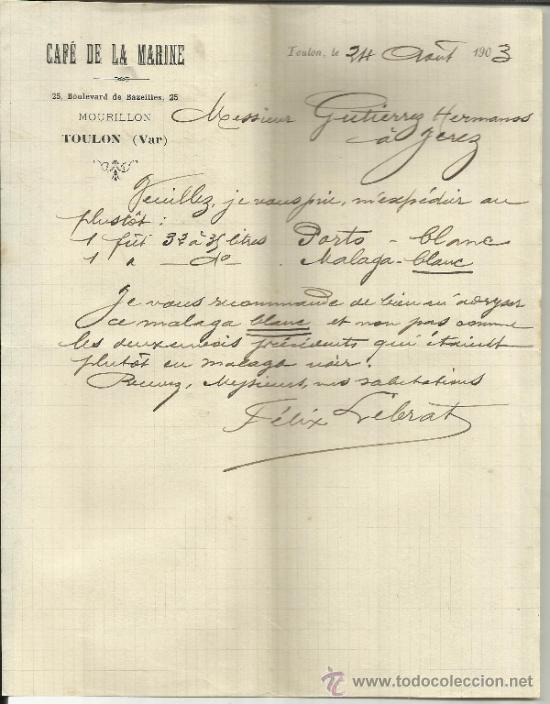 CAFÉ DE LA MARINE
25, Boulevard de Bazeilles, 25
MOURILLON
TOULON (Var)
Toulon, le 24 Août 1903
Messieurs Gutiérrez Hermanos
à Jerez
Veuillez, je vous prie, m'expédier au
plustôt:
1 fût 32 à 35 litres Porto - blanc
1 " do Malaga - blanc
Je vous recommande de bien m'adresser
ce malaga blanc et non pas comme
les deux envois précédents qui étaient
plutôt en malaga noir.
Recevez, Messieurs, mes salutations
Félix Lebrat
todocoleccion
www.todocoleccion.net